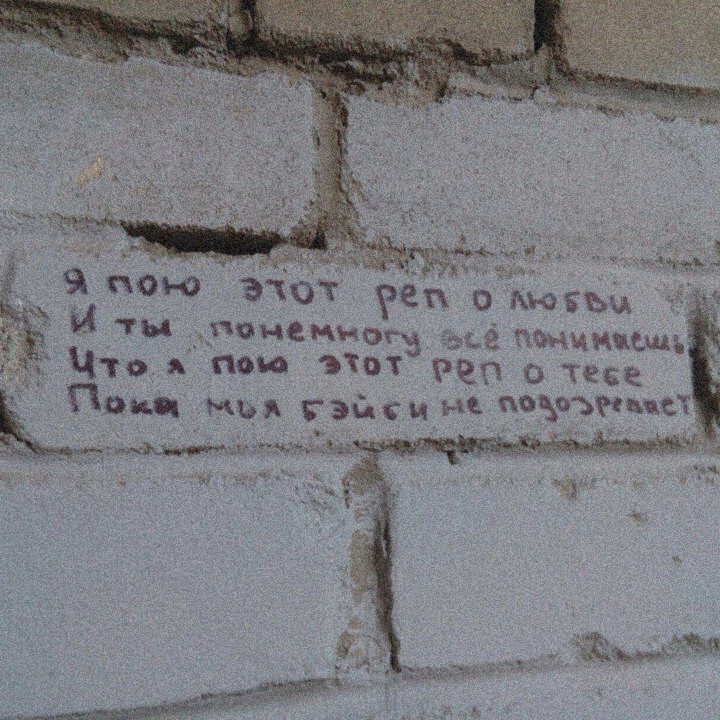 Я пою этот реп о любви
И ты понемногу всё понимаешь
Что я пою этот реп о тебе
Пока моя бэйби не подозревает